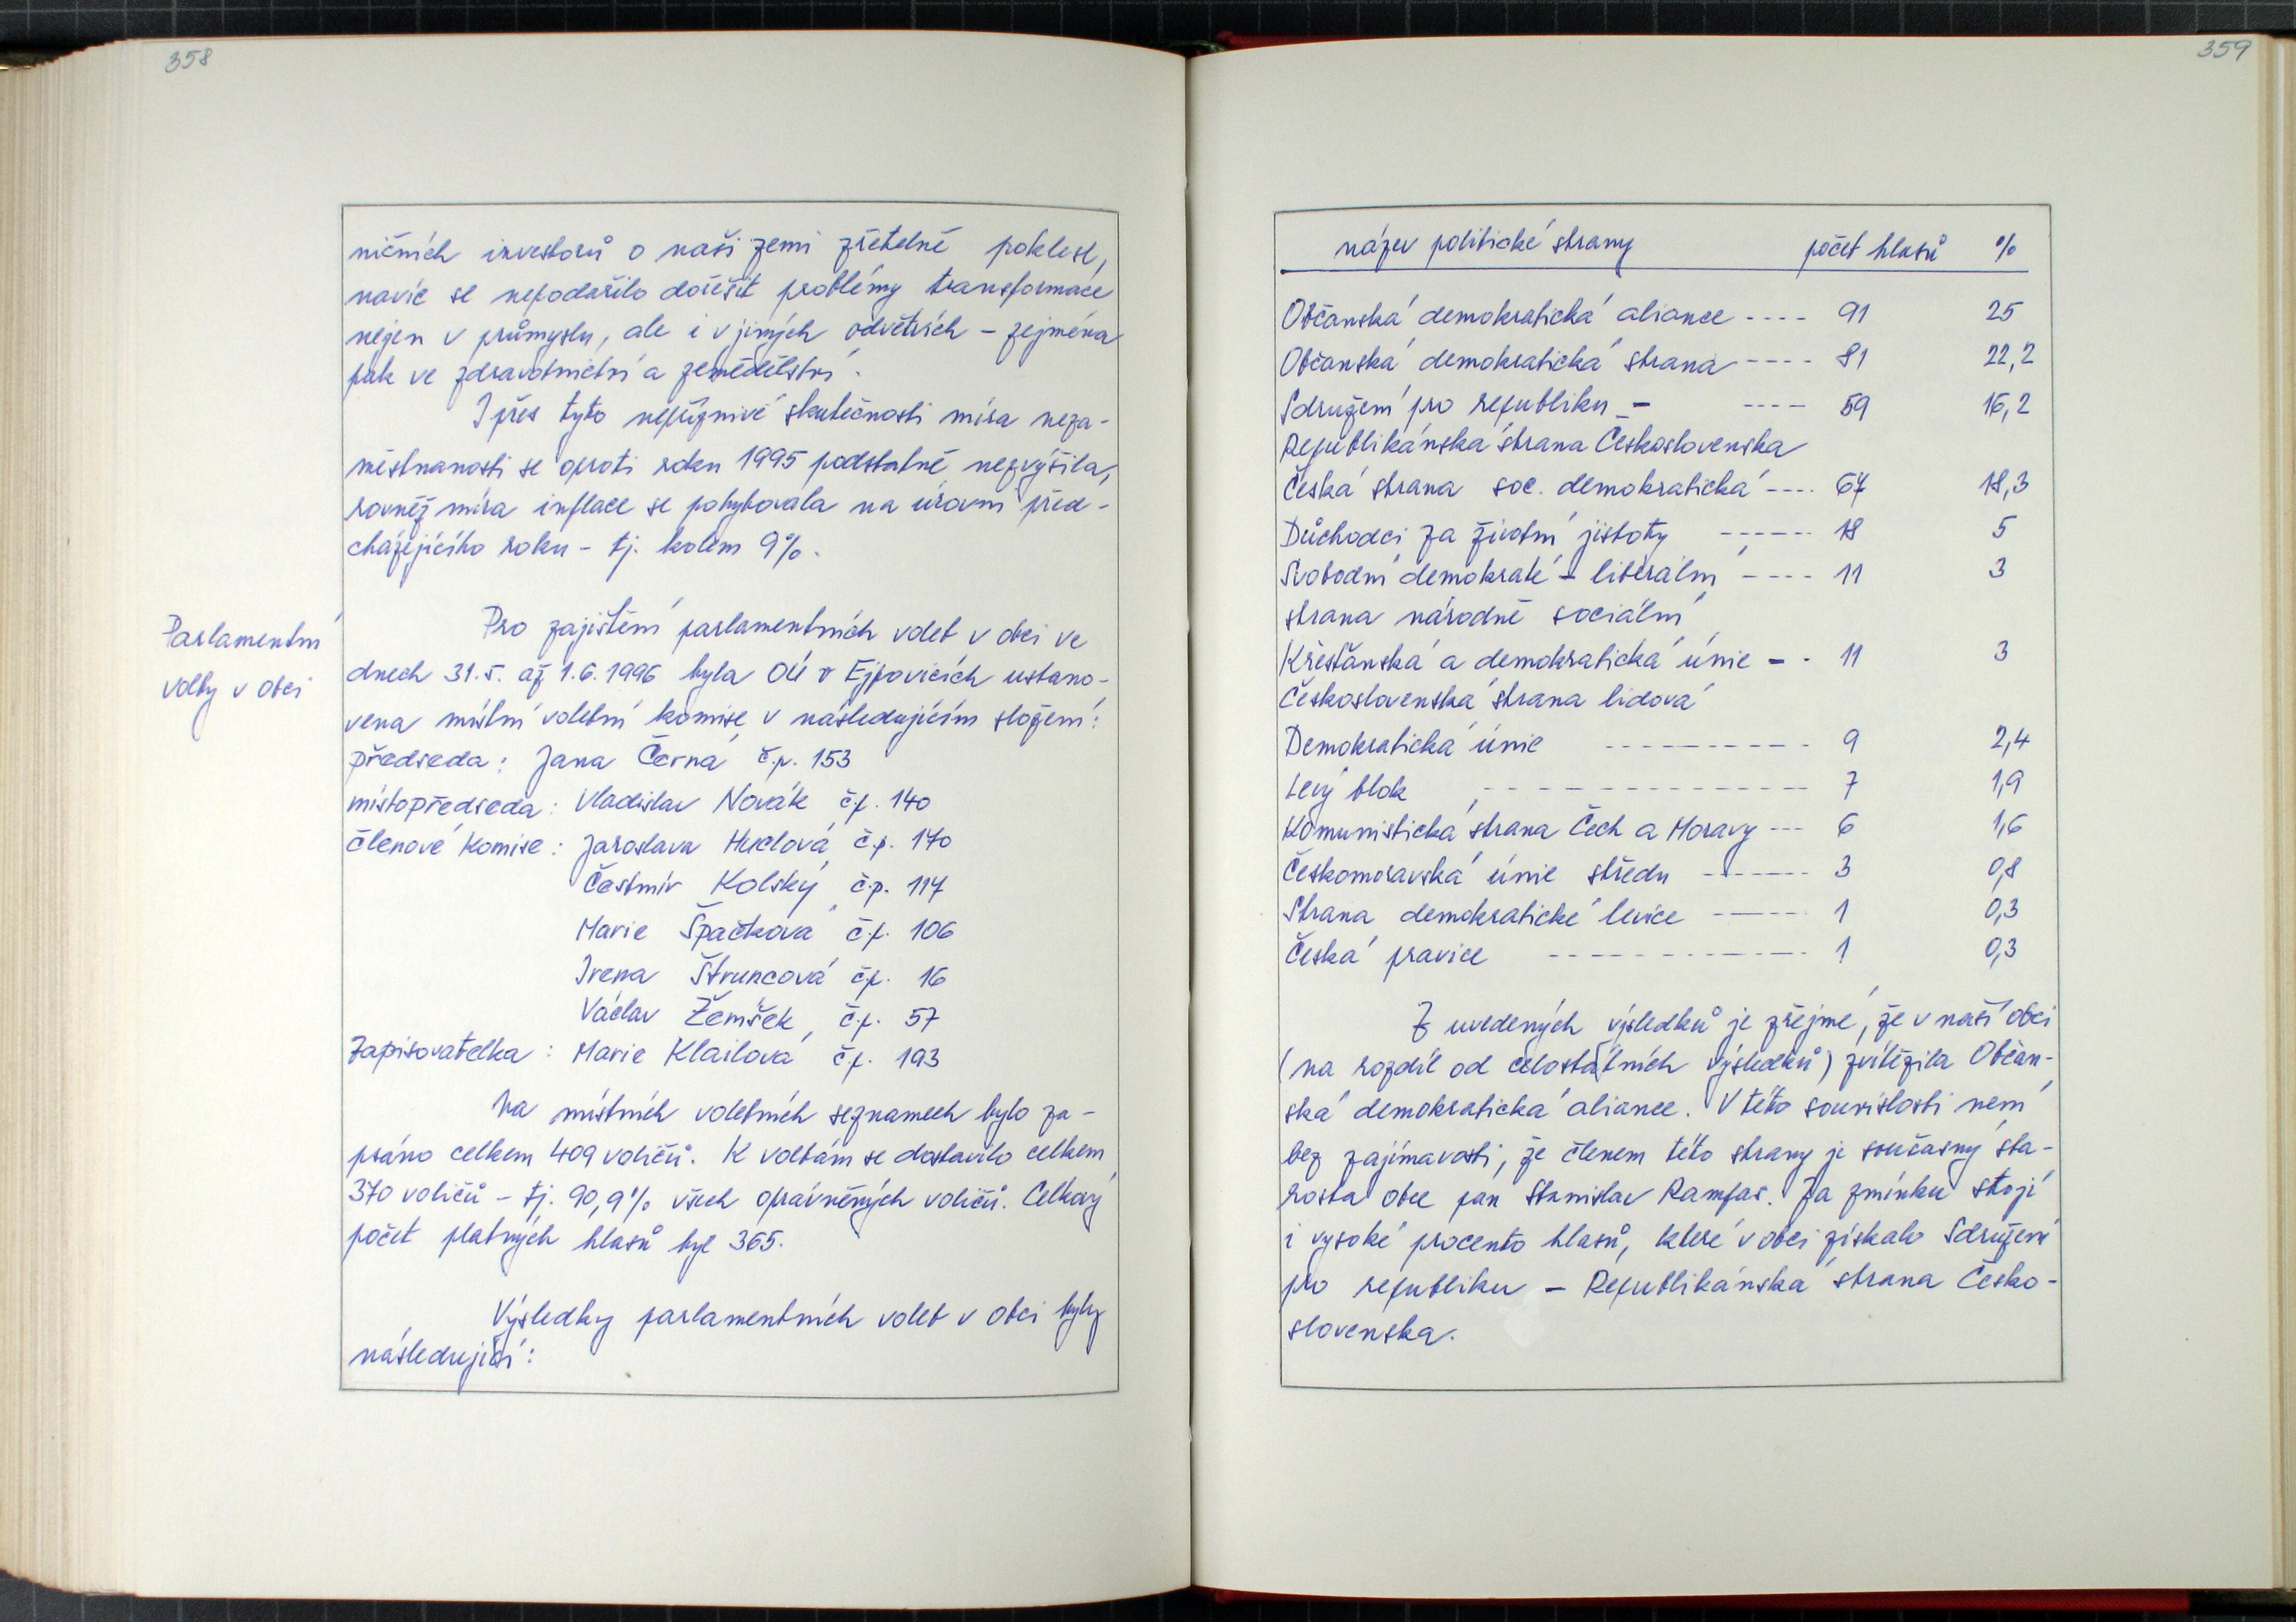 358
ničních investorů o naši zemi zřetelně poklesl,
navíc se nepodařilo dořešit problémy transformace
nejen v průmyslu, ale i v jiných odvětvích – zejména
pak ve zdravotnictví a zemědělství.
I přes tyto nepříznivé skutečnosti míra neza-
městnanosti se oproti roku 1995 podstatně nezvýšila,
rovněž míra inflace se pohybovala na úrovni před-
cházejícího roku – tj. kolem 9%.
Parlamentní
volby v obci
Pro zajištění parlamentních voleb v obci ve
dnech 31.5. až 1.6.1996 byla OÚ v Ejpovicích ustano-
vena místní volební komise v následujícím složení:
předseda: Jana Černá č.p. 153
místopředseda: Vladislav Novák č.p. 140
členové komise: Jaroslava Huclová č.p. 170
Čestmír Kolský č.p. 117
Marie Špačková č.p. 106
Irena Štruncová č.p. 16
Václav Žemšek, č.p. 57
Zapisovatelka: Marie Klailová č.p. 193
Na místních volebních seznamech bylo za-
psáno celkem 409 voličů. K volbám se dostavilo celkem
370 voličů – tj. 90,9% všech oprávněných voličů. Celkový
počet platných hlasů byl 365.
Výsledky parlamentních voleb v obci byly
následující:
359
název politické strany počet hlasů %
Občanská demokratická aliance ---- 91 25
Občanská demokratická strana ---- 81 22,2
Sdružení pro republiku – ---- 59 16,2
Republikánská strana Československa
Česká strana soc. demokratická ---- 67 18,3
Důchodci za životní jistoty ------ 18 5
Svobodní demokraté – liberální ---- 11 3
strana národně sociální
Křesťanská a demokratická únie – - 11 3
Československá strana lidová
Demokratická únie ---------- 9 2,4
Levý blok -------------- 7 1,9
Komunistická strana Čech a Moravy --- 6 1,6
Českomoravská unie středu ------ 3 0,8
Strana demokratické levice ----- 1 0,3
Česká pravice ------------ 1 0,3
Z uvedených výsledků je zřejmé, že v naší obci
(na rozdíl od celostátních výsledků) zvítězila Občan-
ská demokratická aliance. V této souvislosti není
bez zajímavosti, že členem této strany je současný sta-
rosta obce pan Stanislav Rampas. Za zmínku stojí
i vysoké procento hlasů, které v obci získalo Sdružení
pro republiku – Republikánská strana Česko-
slovenska.